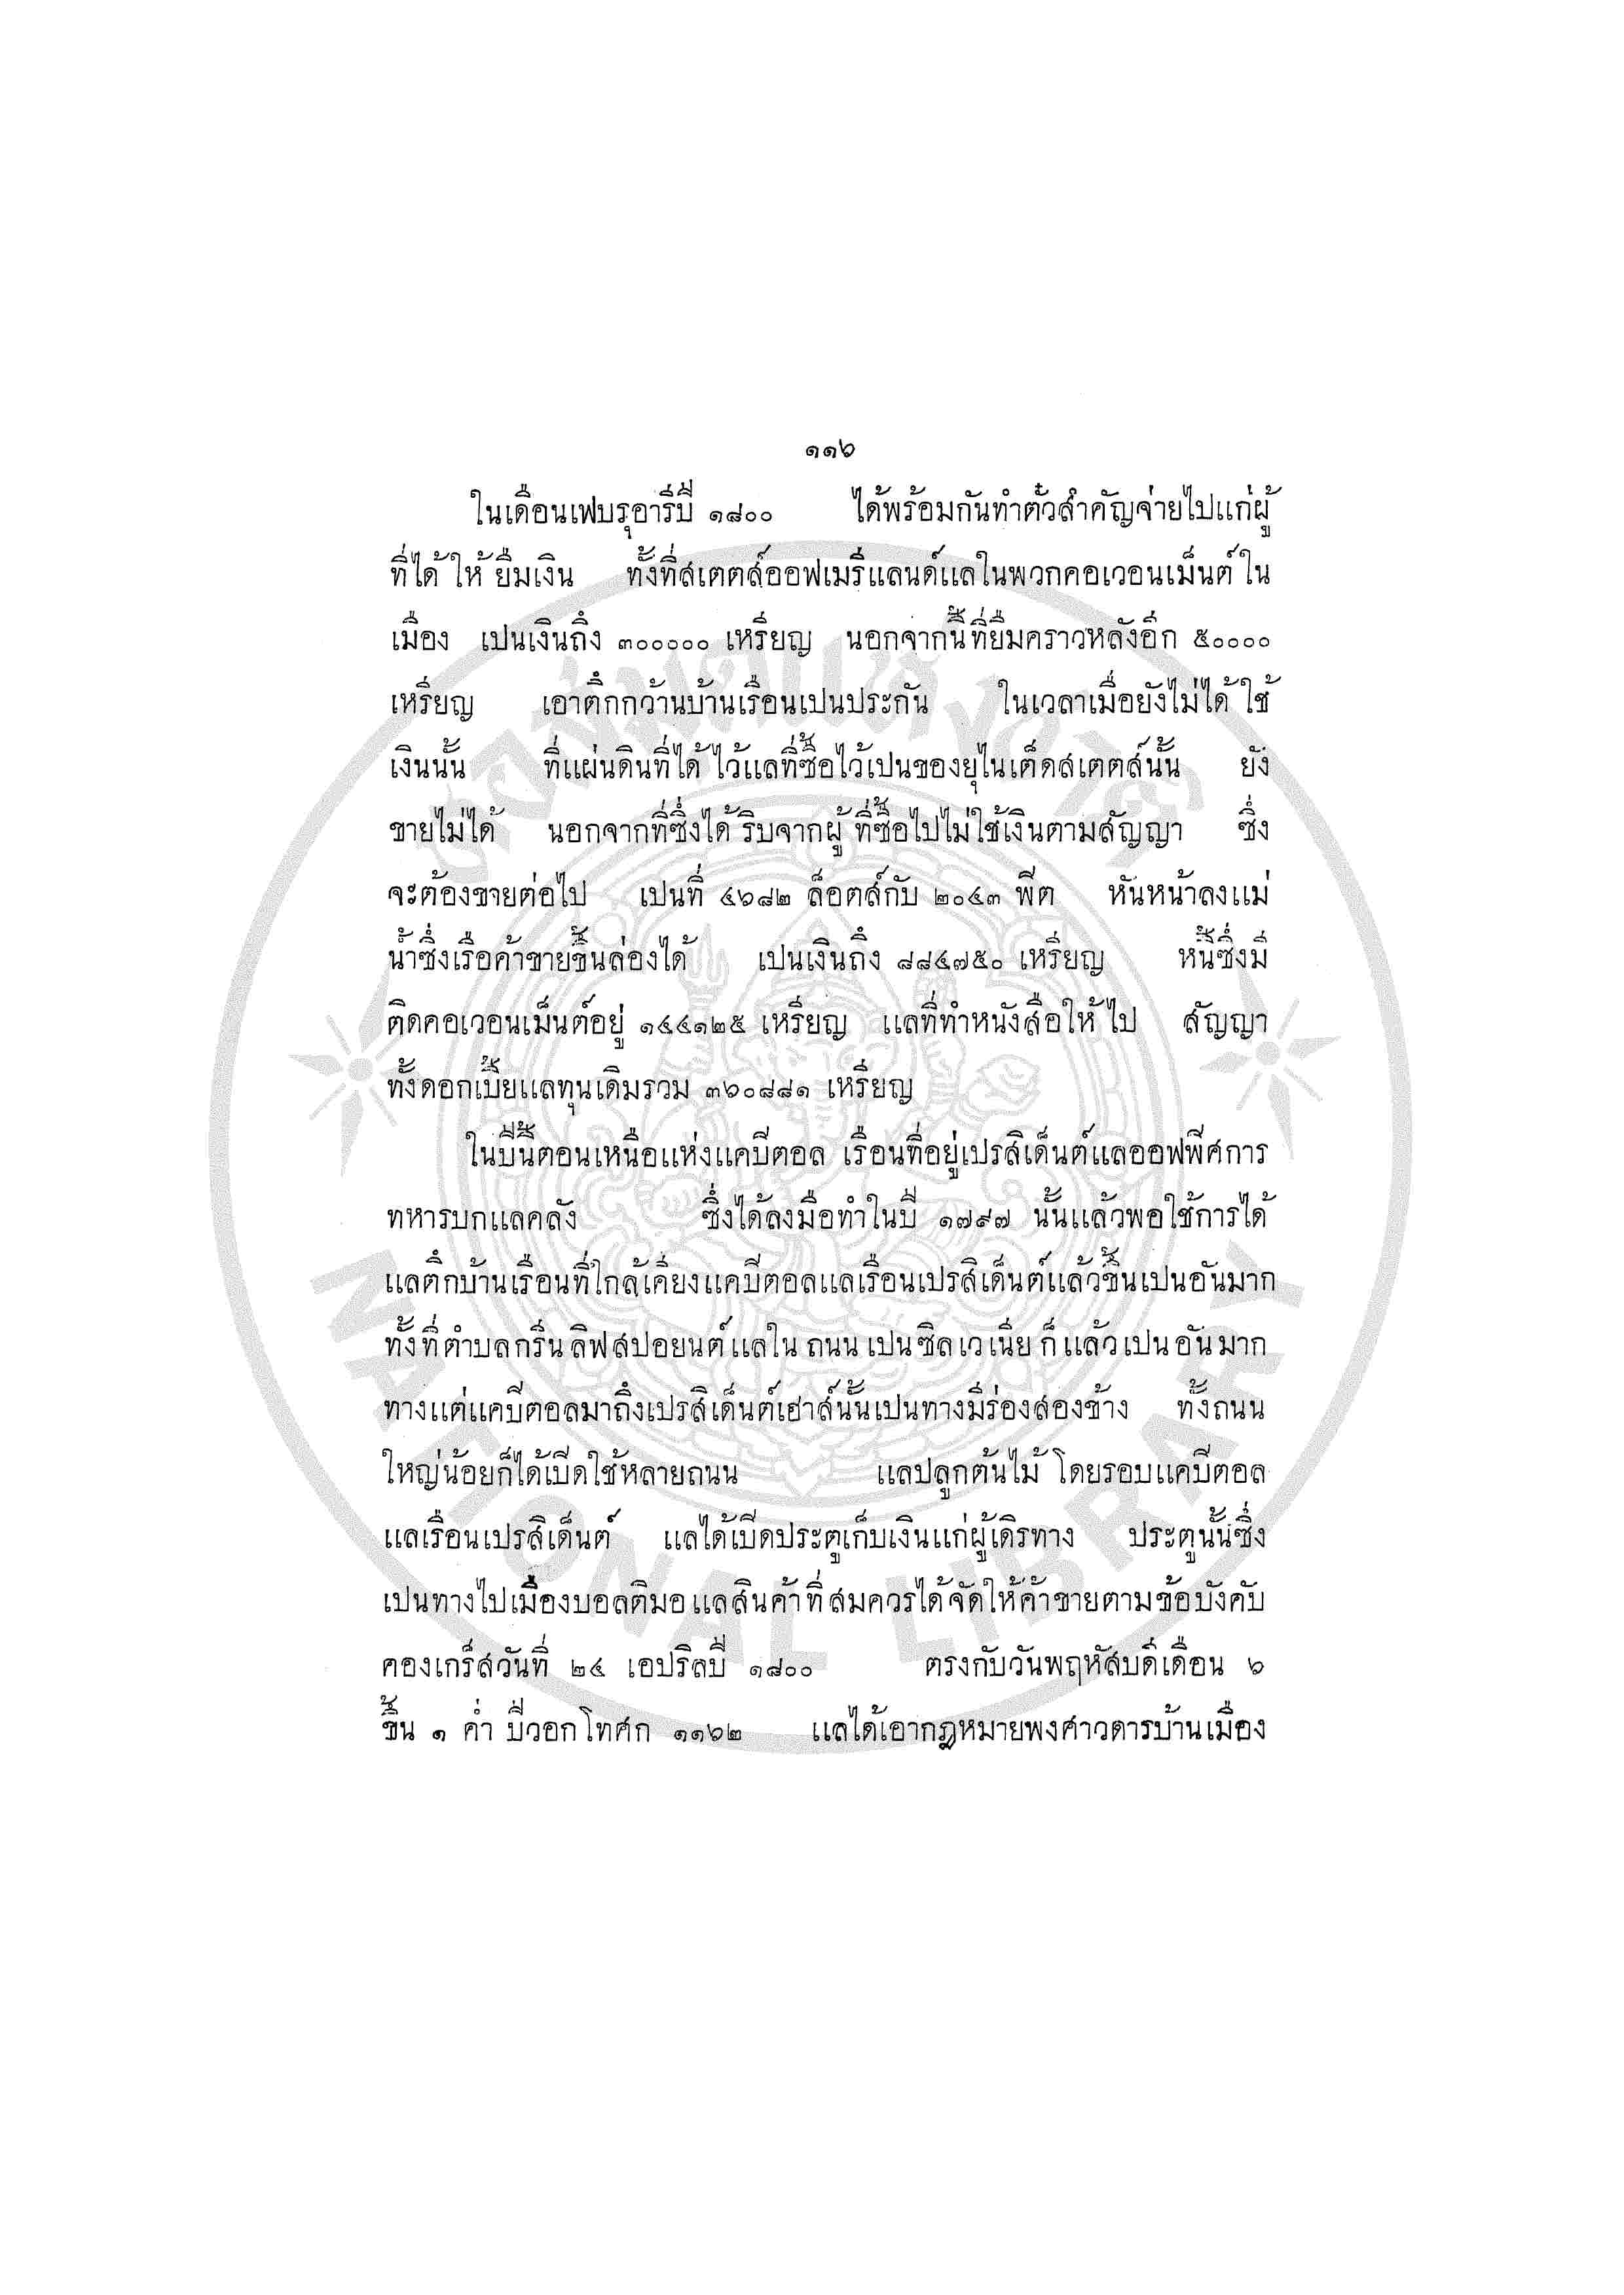 ๑๑๖
ในเดือนเฟบรุอารีปี ๑๘๐๐ ได้พร้อมกันทำตั๋วสำคัญจ่ายไปแก่ผู้
ที่ได้ ให้ ยืมเงิน ทั้งที่สเตตส์ออฟเมรีแลนด์แลในพวกคอเวอนเม็นต์ ใน
เมือง เปนเงินถึง ๓๐๐๐๐๐ เหรียญ นอกจากนี้ที่ยืมคราวหลังอีก ๕๐๐๐๐
เหรียญ เอาตึกกว้านบ้านเรือนเปนประกัน ในเวลาเมื่อยังไม่ได้ ใช้
เงินนั้น ที่แผ่นดินที่ได้ ไว้แลที่ซื้อไว้เปนของยุไนเต็ดสเตตส์นั้น ยัง
ขายไม่ได้ นอกจากที่ซึ่งได้ ริบจากผู้ ที่ซื้อไปไม่ใช้เงินตามสัญญา ซึ่ง
จะต้องขายต่อไป เปนที่ ๔๖๘๒ ล็อตส์กับ ๒๐๔๓ ฟีต หันหน้าลงแม่
น้ำซึ่งเรือค้าขายขึ้นล่องได้ เปนเงินถึง ๘๘๔๗๕๐ เหรียญ หนี้ซึ่งมี
ติดคอเวอนเม็นต์อยู่ ๑๔๔๑๒๕ เหรียญ แลที่ทำหนังสือให้ ไป สัญญา
ทั้งดอกเบี้ยแลทุนเดิมรวม ๓๖๐๘๘๑ เหรียญ
ในปีนี้ตอนเหนือแห่งแคปีตอล เรือนที่อยู่เปรสิเด็นต์แลออฟฟีศการ
ทหารบกแลคลัง ซึ่งได้ลงมือทำในปี ๑๗๙๗ นั้นแล้วพอใช้การได้
แลตึกบ้านเรือนที่ใกล้เคียงแคปีตอลแลเรือนเปรสิเด็นต์แล้วขึ้นเปนอันมาก
ทั้งที่ตำบลกรีนลิฟสปอยนต์แลใน ถนน เปนซิลเวเนีย ก็ แล้ว เปน อัน มาก
ทางแต่แคปีตอลมาถึงเปรสิเด็นต์เฮาส์นั้นเปนทางมีร่องสองข้าง ทั้งถนน
ใหญ่น้อยก็ได้เปิดใช้หลายถนน แลปลูกต้นไม้ โดยรอบแคปีตอล
แลเรือนเปรสิเด็นต์ แลได้เปิดประตูเก็บเงินแก่ผู้เดิรทาง ประตูนั้นซึ่ง
เปนทางไปเมืองบอลติมอแลสินค้าที่สมควรได้จัดให้ค้าขายตามข้อบังคับ
คองเกร็สวันที่ ๒๔ เอปริลปี ๑๘๐๐ ตรงกับวันพฤหัสบดีเดือน ๖
ขึ้น ๑ ค่ำ ปีวอกโทศก ๑๑๖๒ แลได้เอากฎหมายพงศาวดารบ้านเมือง
หอสมุดแห่งชาติ
NATIONAL LIBRARY